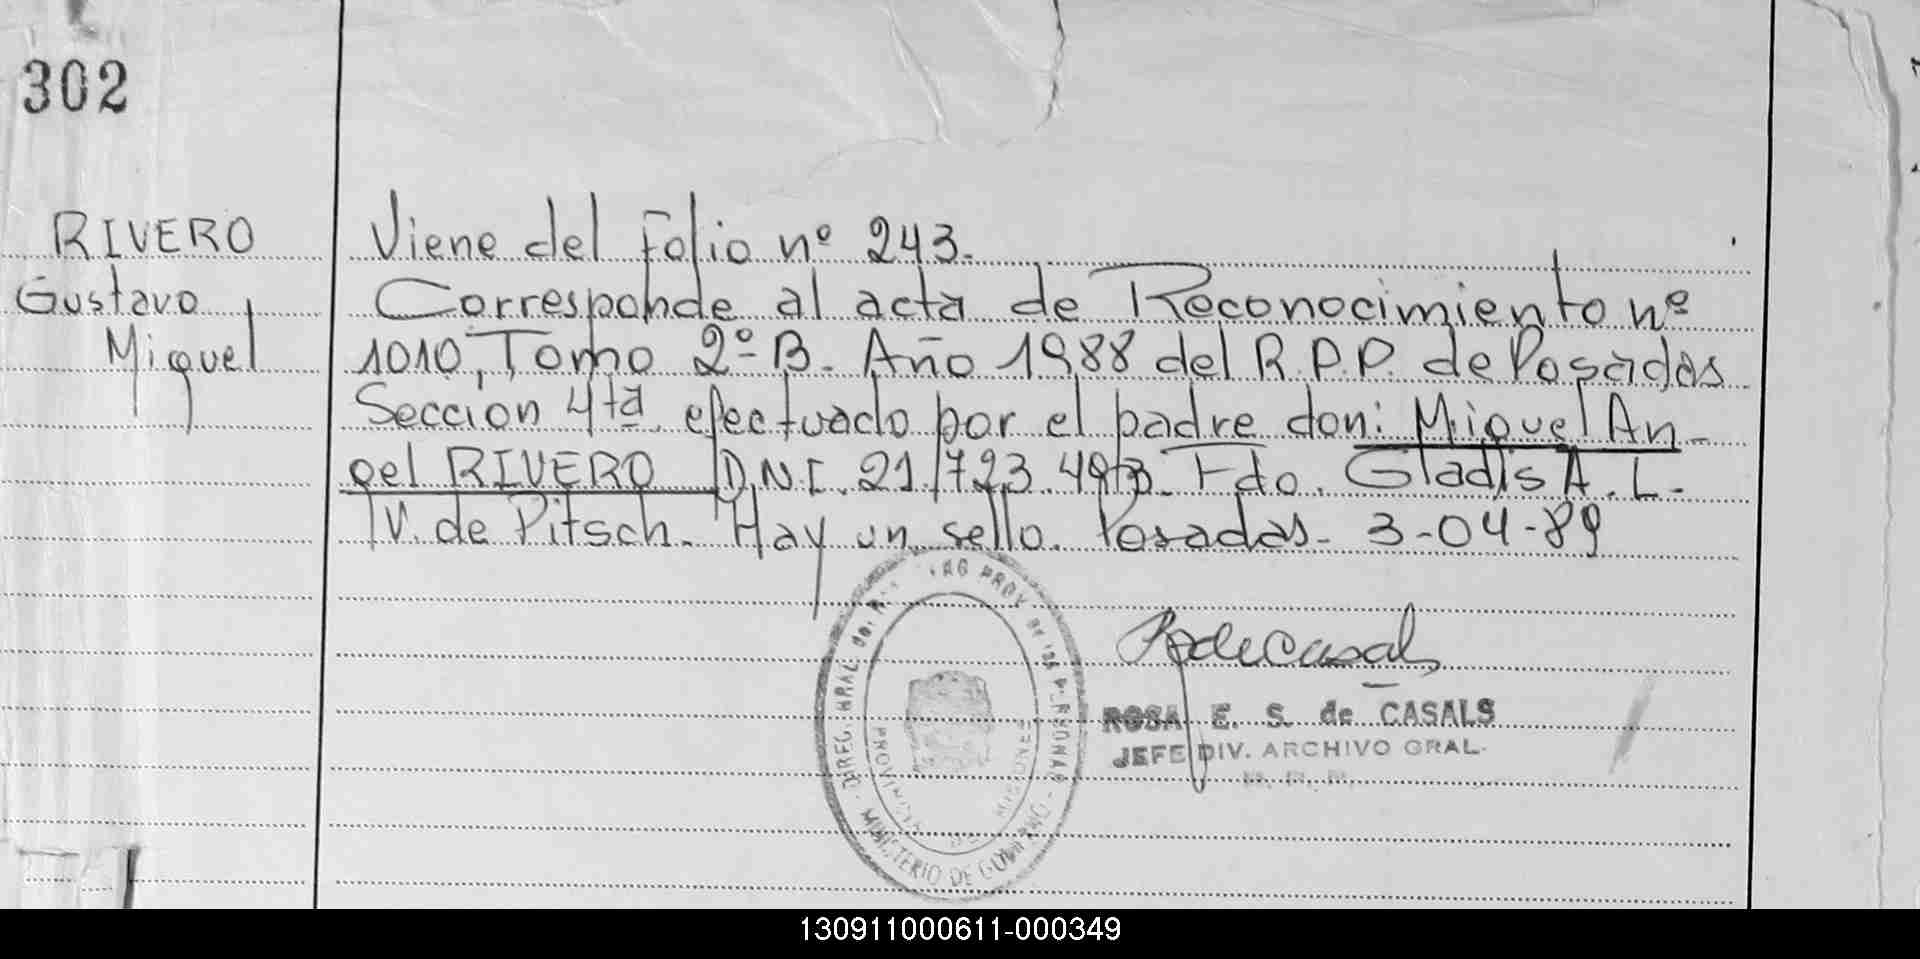 302
RIVERO
Gustavo
Miguel
Viene del Folio nº 243.
Corresponde al acta de Reconocimiento nº
1010, Tomo 2º B. Año 1988 del R.P.P. de Posadas
Seccion 4ta. efectuado por el padre don: Miguel An-
gel RIVERO D.N.I. 21.723.493. Fdo. Gladis A. L.
V. de Pitsch. Hay un sello. Posadas. 3-04-89
ROSA E. S. de CASALS
JEFE DIV. ARCHIVO GRAL.
PROV. DE LAS PERSONAS
MINISTERIO DE GOBIERNO
PROVINCIA DE MISIONES
130911000611-000349